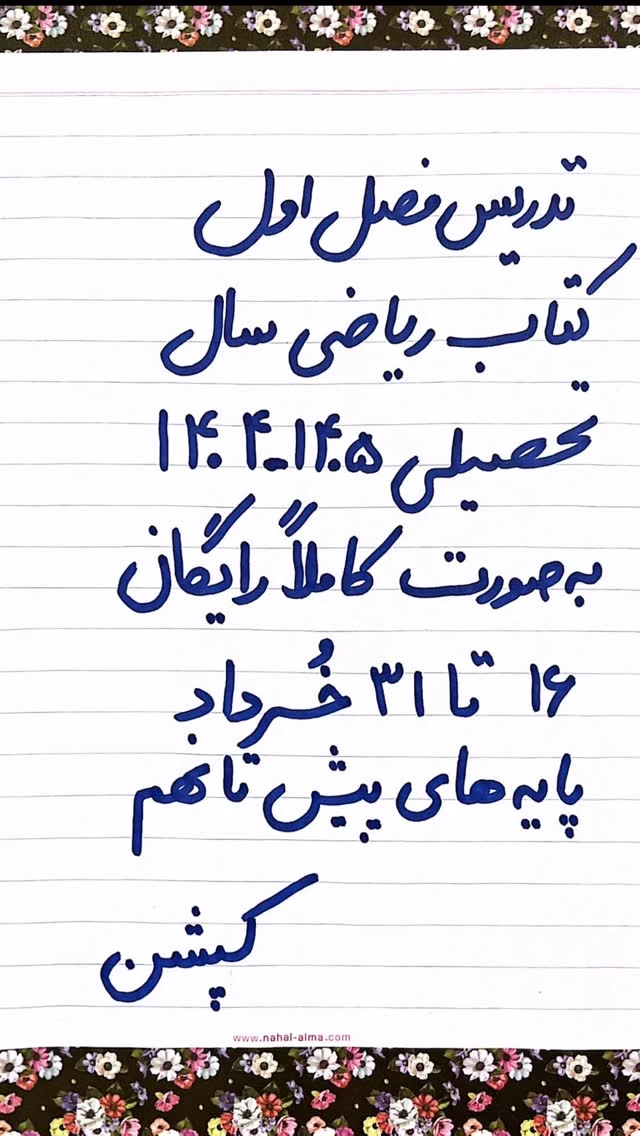 تدریس فصل اول
کتاب ریاضی سال
تحصیلی ۱۴۰۵-۱۴۰۴
به صورت کاملاً رایگان
۱۶ تا ۳۱ خُرداد
پایه های پیش تا نهم
کپشن
www.nahal-alma.com